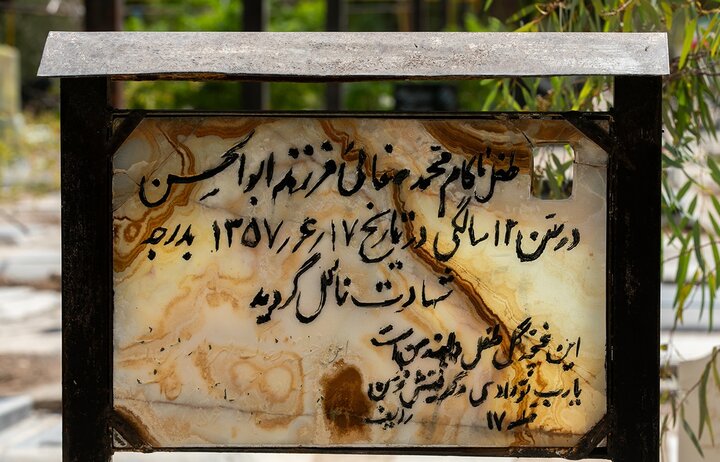 طفل ناکام محمد صفائی فرزند ابوالحسن
در سن ۱۲ سالگی در تاریخ ۱۳۵۷٫۶٫۱۷ بدرجه
شهادت نائل گردید
این غنچه گل طفل دلبند من است
یارب تو رادی
قطعه ۱۷ ردیف